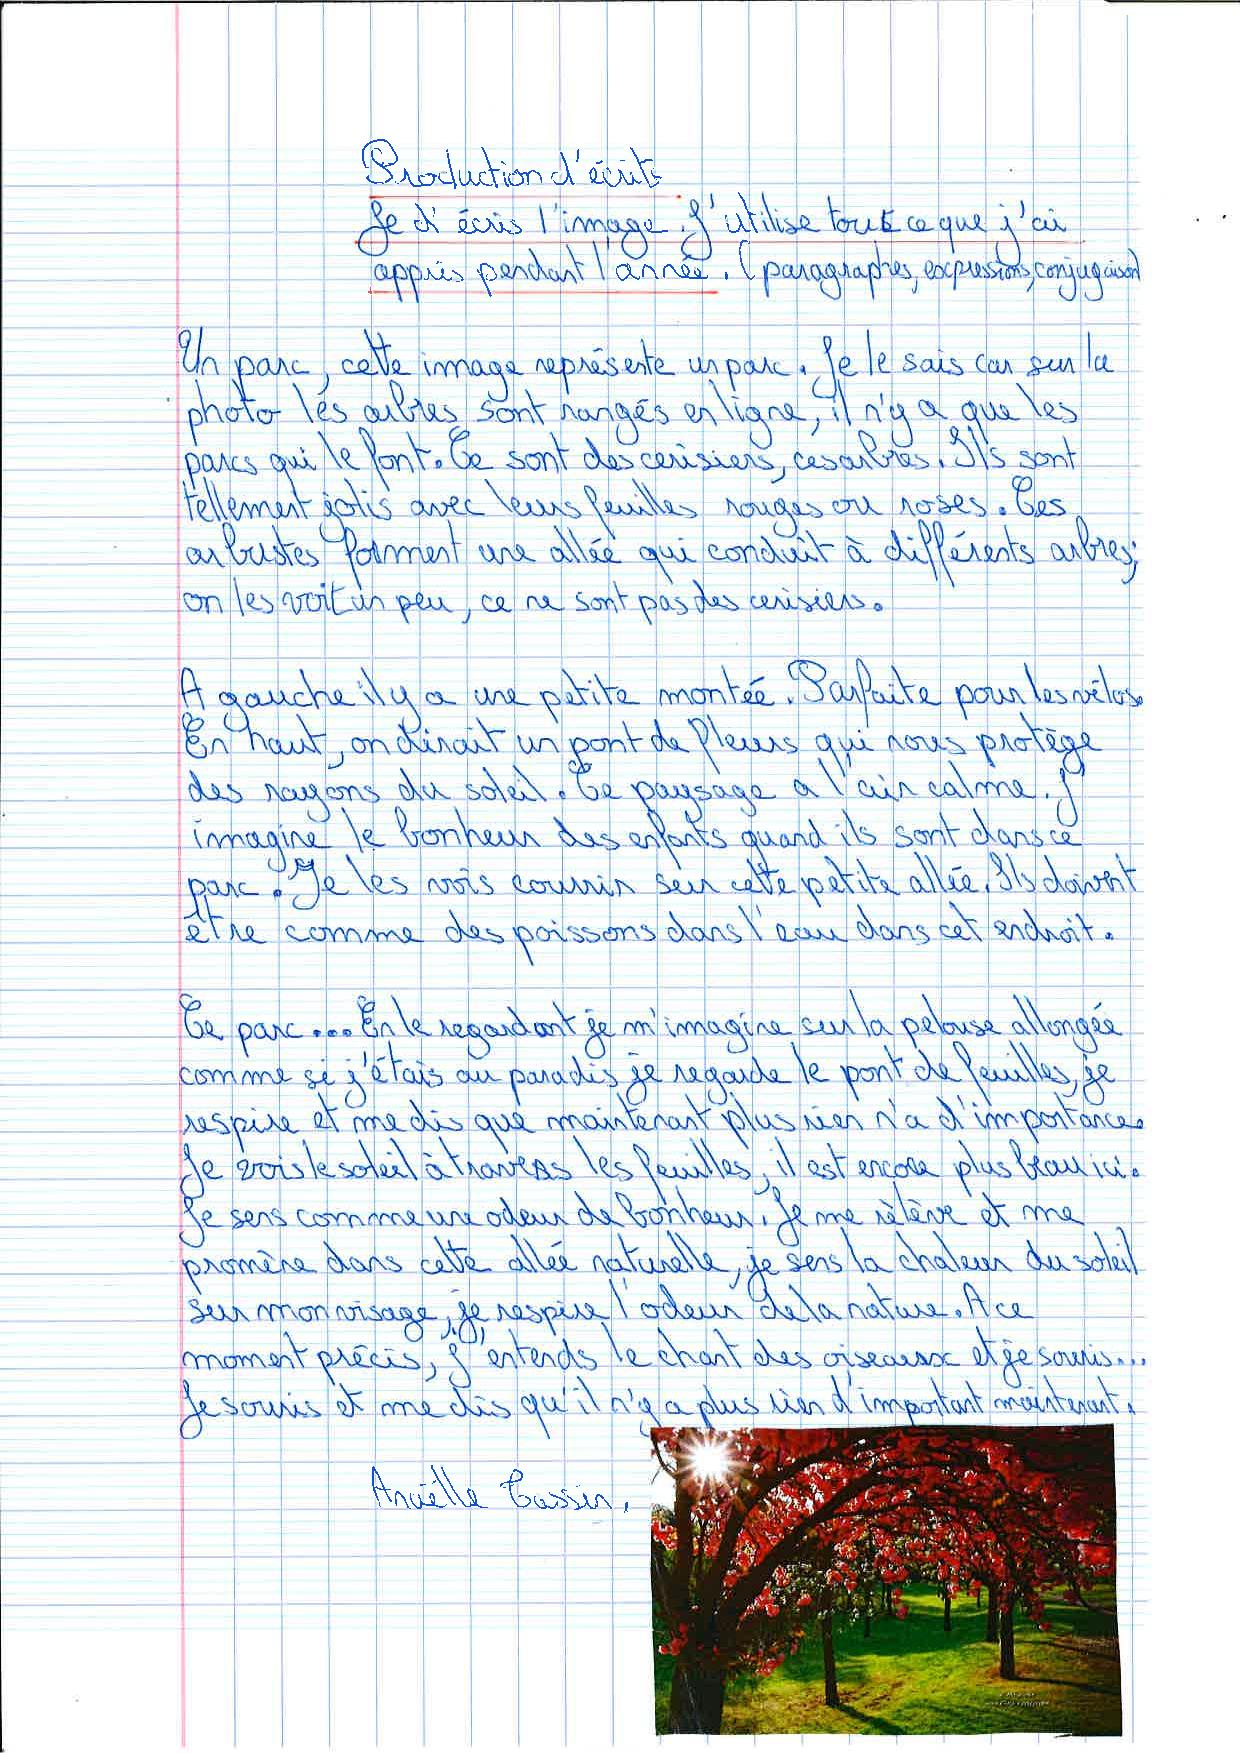 Production d'écrits
Je d'écris l'image. J'utilise tout ce que j'ai
appris pendant l'année. (paragraphes, expressions, conjugaison)
Un parc, cette image représente un parc. Je le sais car sur la
photo les arbres sont rangés en ligne, il n'y a que les
parcs qui le font. Ce sont des cerisiers, ces arbres. Ils sont
tellement jolis avec leurs feuilles rouges ou roses. Ces
arbustes forment une allée qui conduit à différents arbres;
on les voit un peu, ce ne sont pas des cerisiers.
A gauche il y a une petite montée. Parfaite pour les vélos.
En haut, on dirait un pont de fleurs qui nous protège
des rayons du soleil. Ce paysage a l'air calme. J'
imagine le bonheur des enfants quand ils sont dans ce
parc. Je les vois courrir sur cette petite allée. Ils doivent
être comme des poissons dans l'eau dans cet endroit.
Ce parc... En le regardant je m'imagine sur la pelouse allongée
comme si j'étais au paradis je regarde le pont de feuilles, je
respire et me dis que maintenant plus rien n'a d'importance.
Je vois le soleil à travers les feuilles, il est encore plus beau ici.
Je sens comme une odeur de bonheur. Je me relève et me
promène dans cette allée naturelle, je sens la chaleur du soleil
sur mon visage, je respire l'odeur de la nature. A ce
moment précis, j'entends le chant des oiseaux et je souris...
Je souris et me dis qu'il n'y a plus rien d'important maintenant.
Anaëlle Cassin.